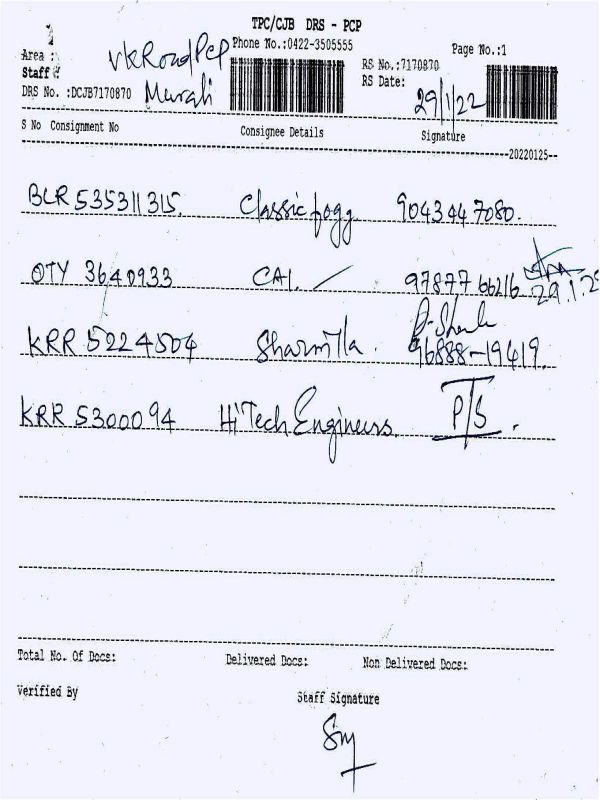 TPC/CJB DRS - PCP
Area : VKRoad Pcp Phone No.:0422-3505555 Page No.:1
Staff : RS No.:7170870
DRS No. :DCJB7170870 Murali RS Date: 29/1/22
S No Consignment No Consignee Details Signature
20220125
BLR 535311315. Classic fogg 9043447080.
OTY 3640933 CAI. 97877 66216 29.1.2
KRR 5224504 Sharmilla. 96888-19419.
KRR 5300094 Hi Tech Engineers. P/S.
Total No. Of Docs: Delivered Docs: Non Delivered Docs:
Verified By Staff Signature